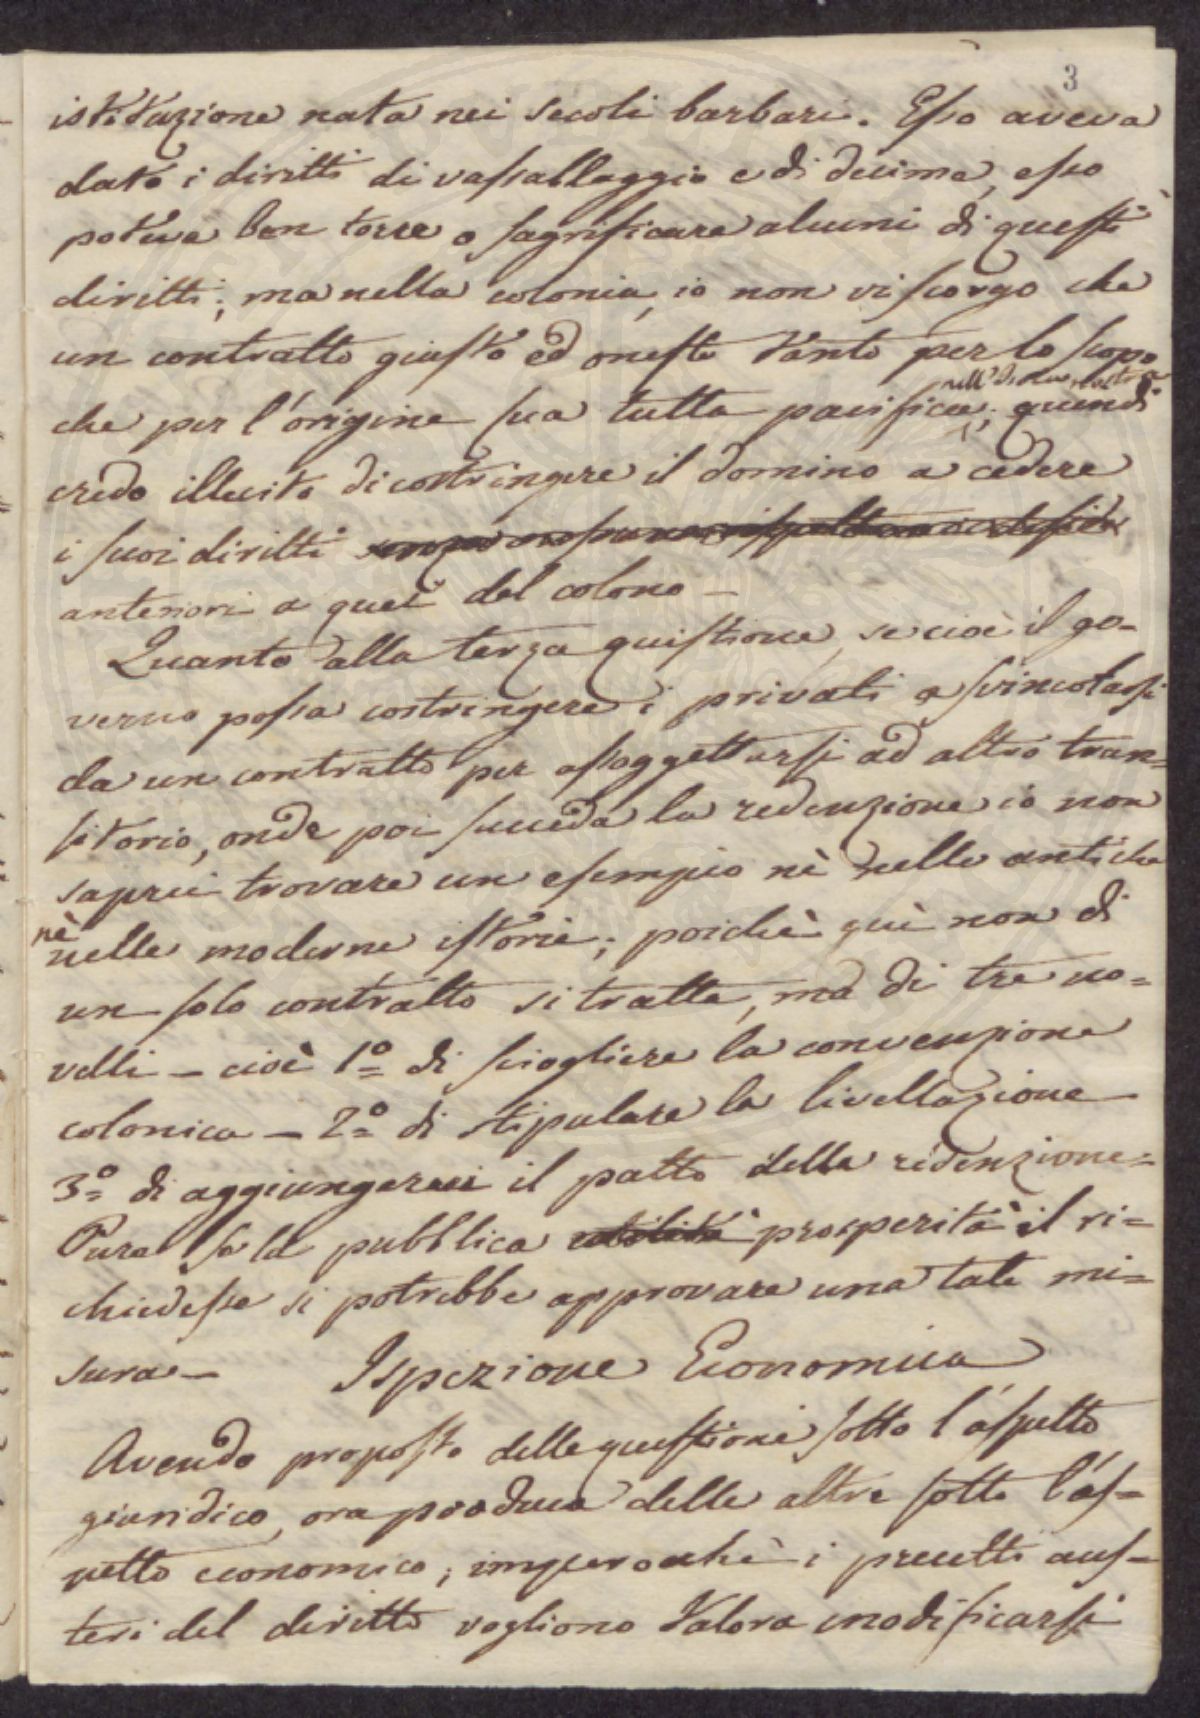 3
istituzione nata nei secoli barbari. Esso aveva
dato i diritti di vassallaggio e di decima, esso
poteva ben torre o sagrificare alcuni di questi
diritti; ma nella colonia, io non vi scorgo che
un contratto giusto ed onesto tanto per lo scopo
che per l'origine sua tutta pacifica; quindi
credo illecito di costringere il domino a cedere
i suoi diritti
anteriori a quei del colono –
Quanto alla terza quistione, se cioè il go=
verno possa costringere i privati a svincolarsi
da un contratto per assoggettarsi ad altro tran=
sitorio, onde poi succeda la redenzione io non
saprei trovare un esempio nè nelle antiche
nè
nelle moderne istorie; poichè quì non di
un solo contratto si tratta, ma di tre no=
velli – cioè 1º di sciogliere la convenzione
colonica – 2º di stipulare la livellazione
3º di aggiungervi il patto della redenzione=
Pure se la pubblica utilità prosperità il ri=
chiedesse si potrebbe approvare una tale mi=
sura – Ispezione Economica
Avendo proposto delle questioni sotto l'aspetto
giuridico, ora produco delle altre sotto l'as=
petto economico; imperocchè i precetti aus=
teri del diritto vogliono talora modificarsi